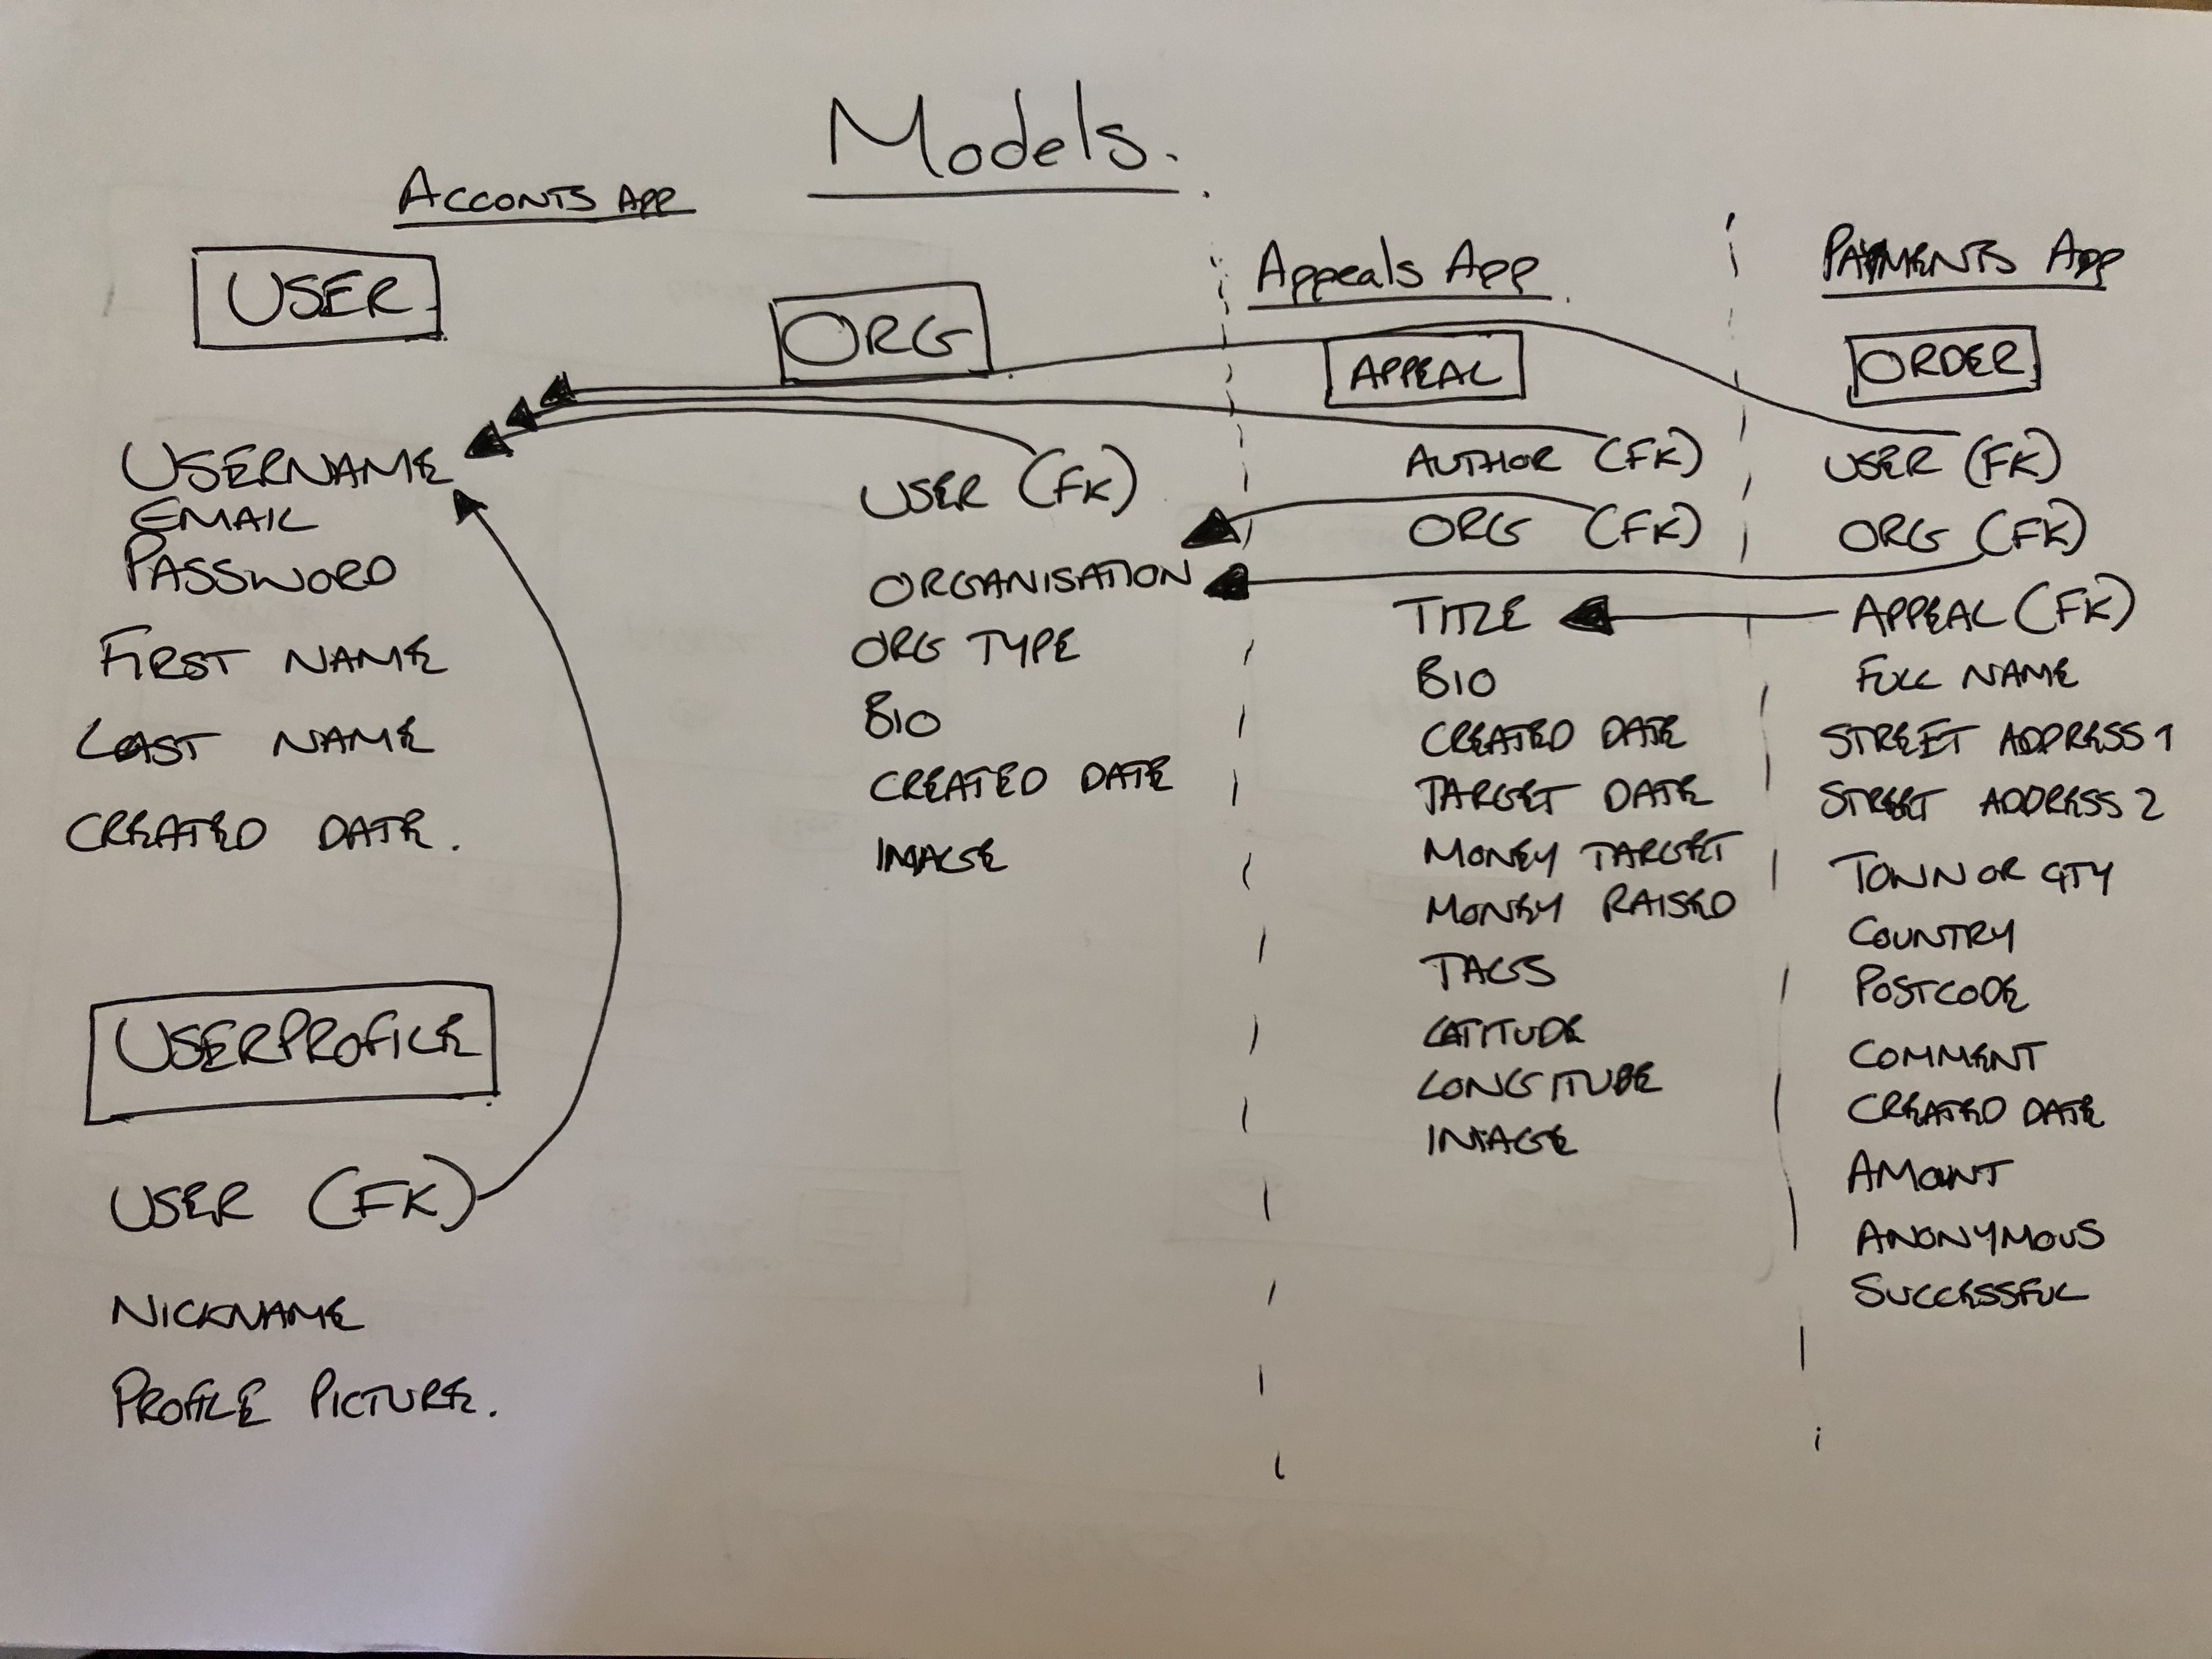 Models.
Acconts App
USER
USERNAME
EMAIL
PASSWORD
FIRST NAME
LAST NAME
CREATED DATE.
USERPROFILE
USER (FK)
NICKNAME
PROFILE PICTURE.
ORG
USER (FK)
ORGANISATION
ORG TYPE
BIO
CREATED DATE
IMAGE
Appeals App
APPEAL
AUTHOR (FK)
ORG (FK)
TITLE
BIO
CREATED DATE
TARGET DATE
MONEY TARGET
MONEY RAISED
TAGS
LATITUDE
LONGITUDE
IMAGE
PAYMENTS App
ORDER
USER (FK)
ORG (FK)
APPEAL (FK)
FULL NAME
STREET ADDRESS 1
STREET ADDRESS 2
TOWN OR CITY
COUNTRY
POSTCODE
COMMENT
CREATED DATE
AMOUNT
ANONYMOUS
SUCCESSFUL